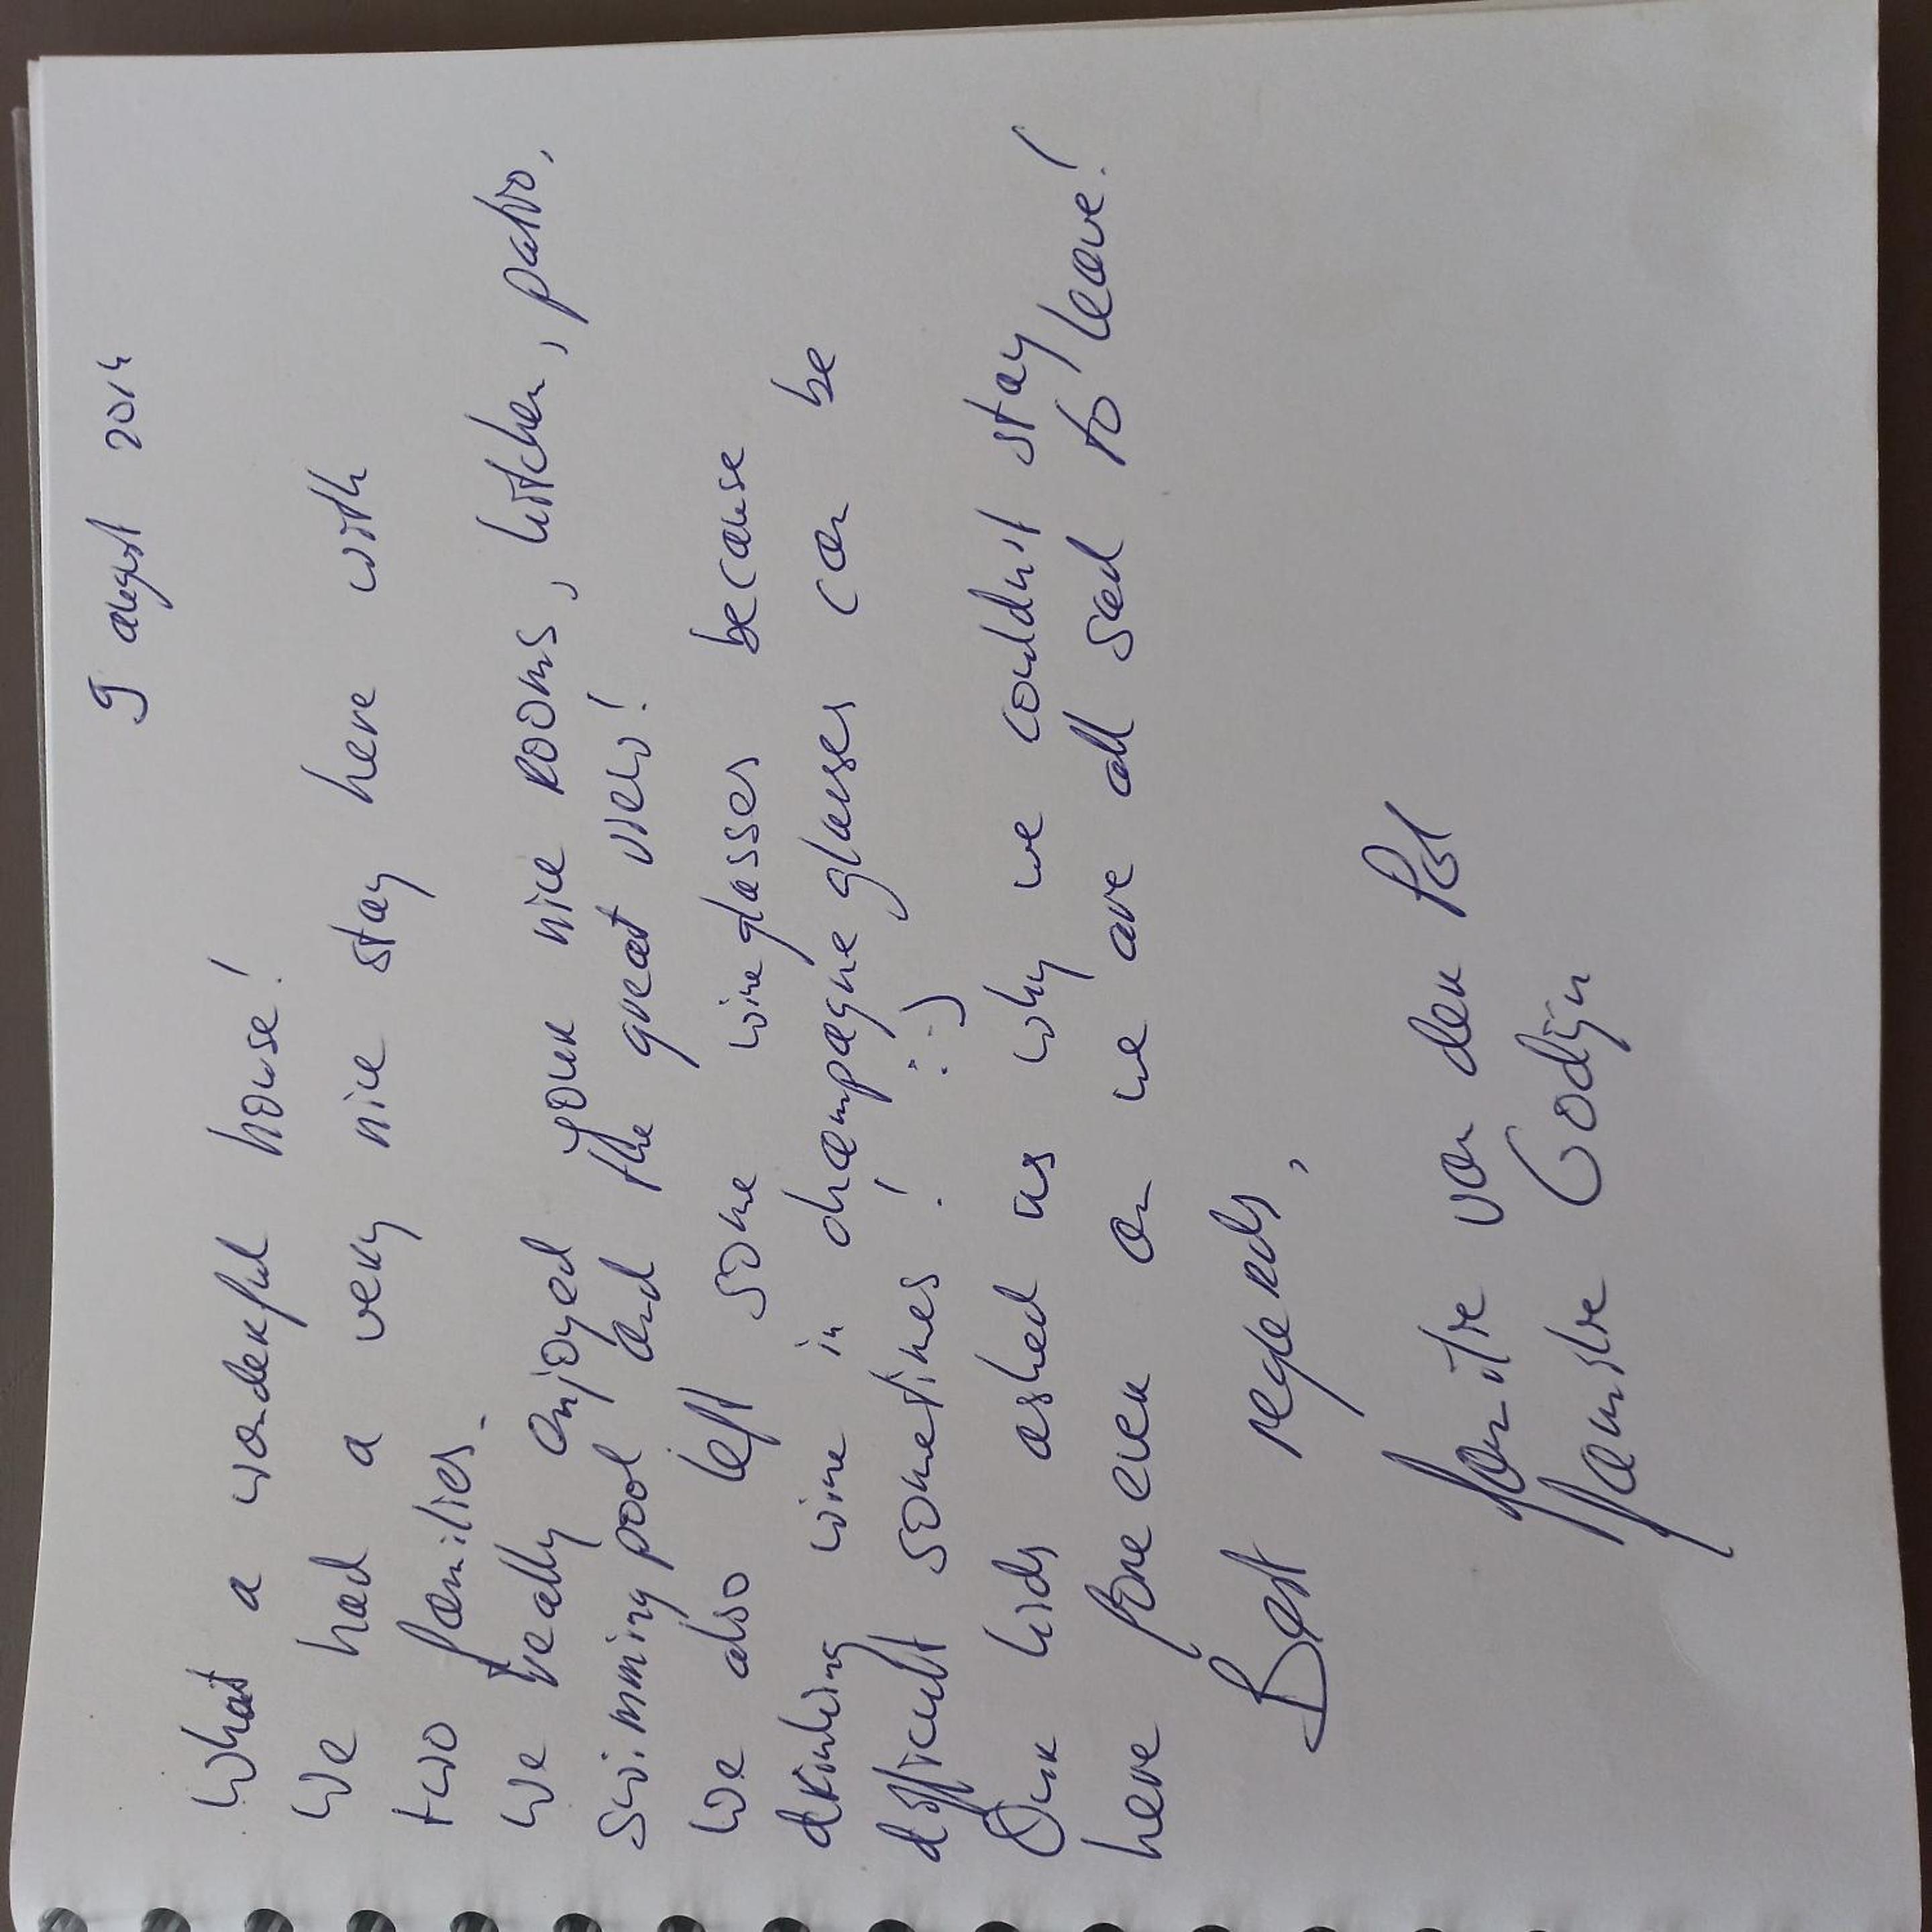 9 august 2014
What a wonderful house!
We had a very nice stay here with
two families.
We really enjoyed your nice rooms, kitchen, patio,
swimmingpool and the great view!
We also left some wineglasses because
drinking wine in champagneglasses can be
difficult sometimes! :-)
Our kids asked us why we couldn't stay
here forever and we are all sad to leave!
Best regards,
van der Pol
Godijn